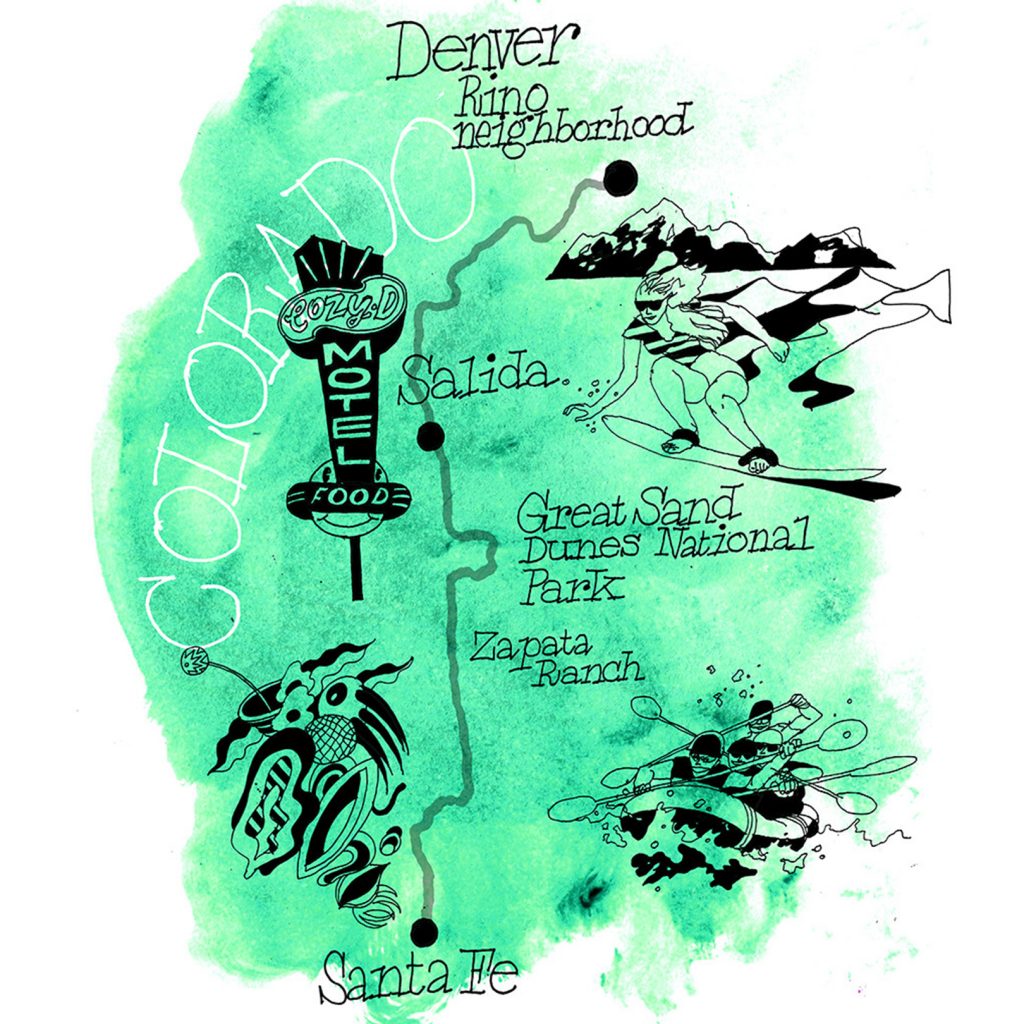 Denver
Rino
neighborhood
COlORADO
Cozy.D
MOTEL
FOOD
Salida.
Great Sand
Dunes National
Park
Zapata
Ranch
Santa Fe